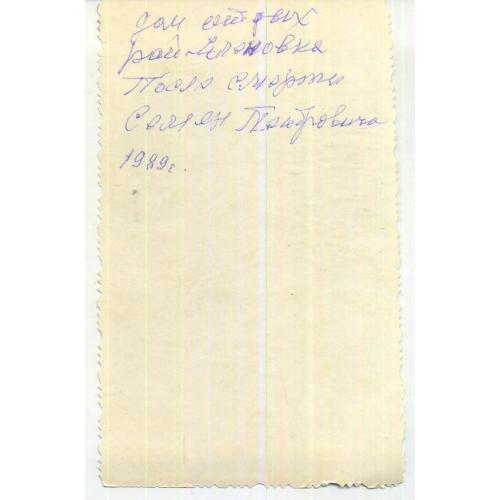 дом отдых
рай-Еленовка
После смерти
Семен Петровича
1989г.